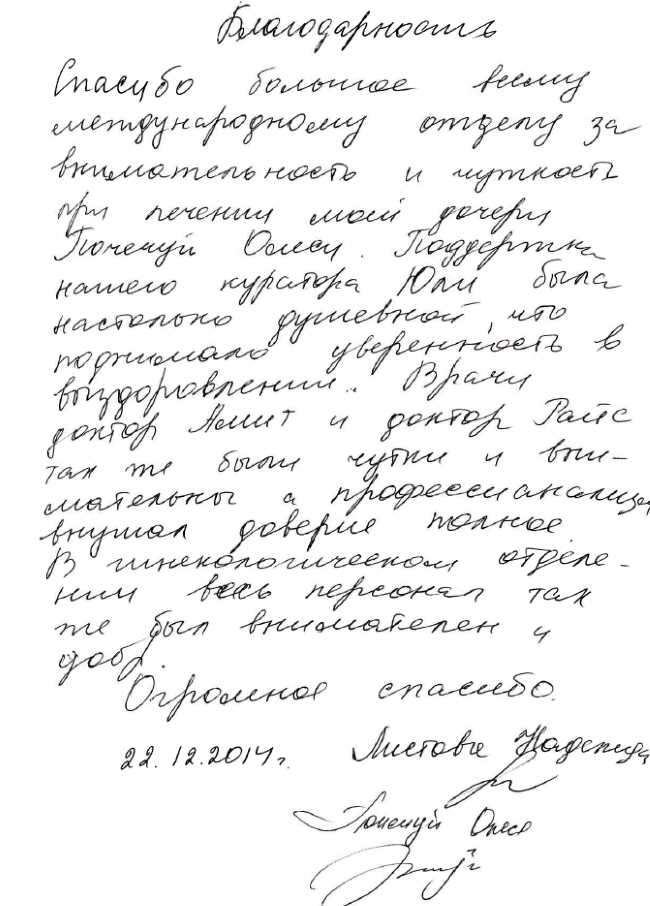 Благодарность
Спасибо большое всему
международному отделу за
внимательность и чуткость
при лечении моей дочери
Почекуй Олеси. Поддержка
нашего куратора Юли была
настолько душевной, что
поднимало уверенность в
выздоровлении. Врачи
доктор Амит и доктор Райс
так же были чутки и вни-
мательны а профессианализм
внушал доверие полное
В гинекологическом отделе-
нии весь персонал так
же был внимателен и
добр.
Огромное спасибо.
22.12.2014г. Листовые Надежда
Почекуй Олеся